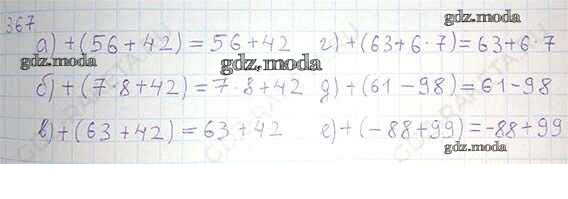 367
gdz.moda
gdz.moda
а) +(56+42) = 56+42 г) +(63+6·7) = 63+6·7
gdz.moda
gdz.moda
б) +(7·8+42) = 7·8+42 д) +(61-98) = 61-98
в) +(63+42) = 63+42 е) +(-88+99) = -88+99
gdz.moda